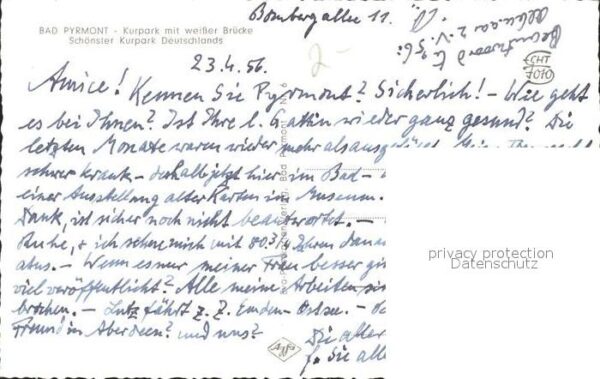 Bombergallee 11.
BAD PYRMONT - Kurpark mit weißer Brücke
Schönster Kurpark Deutschlands
Beantwoord
23.4.56.
Amice! Kennen Sie Pyrmont? Sicherlich! - Wie geht
es bei Ihnen? Ist Ihre l. Gattin wieder ganz gesund? Die
letzten Monate waren wieder mehr als
schwer krank - deshalb jetzt hier im Bad -
einer Ausstellung alter Karten im Museum.
Dank, ist sicher noch nicht beantwortet. -
Ruhe, + ich sehne mich mit 80 3/4 Jahren
Wenn es nur meiner Frau besser
viel veröffentlicht! Alle meine Arbeiten
brochen. - Lutz fährt z. Z. Emden - Ostsee. -
Freund in Aberdeen? und uns?
Die aller
f. Sie all
Agfa
privacy protection
Datenschutz